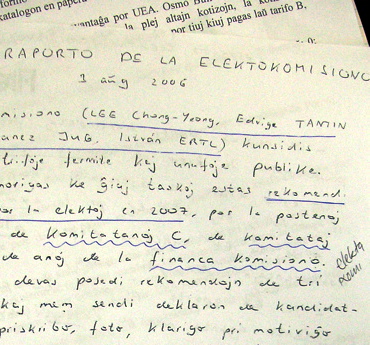 katalogon en pape
vantaĝa por UEA. Osmo Bu
la plej altajn kotizojn, la ko
por tiuj kiuj pagas laŭ tarifo B,
RAPORTO DE LA ELEKTOKOMISIONO
3 aŭg 2006
misiono (LEE Chong-Yeong, Edvige TAMIN
anez JuG. István ERTL) kunsidis
trifoje fermite kaj unufoje publike.
ke ĝiuj taskoj estas rekomendi
por la elektoj en 2007, por la postenoj
de Komitatanoj C, de Komitataj
de anoj de la financa komisiono.
devas posedi rekomendojn de tri
kaj mem sendi deklaron de kandidat-
priskribo, foto, klarigo pri motiviĝo
elekta